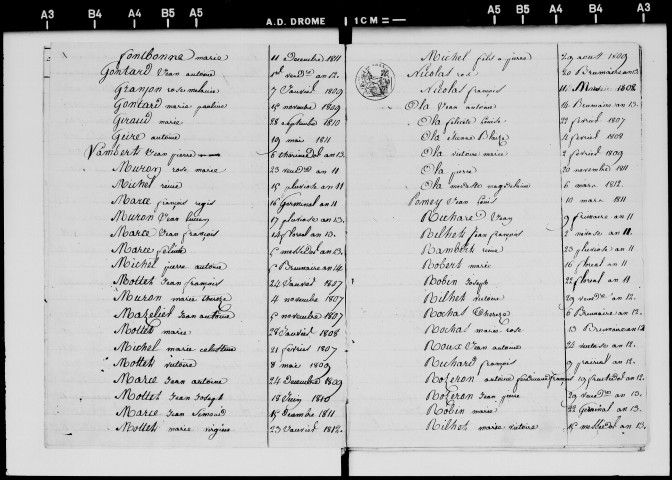 A3 B4 A4 B5 A5 A.D. DROME 1CM A5 A4 B5 B4 A3
Fontbonne marie 11 Decembre 1811
Gontard Jean antoine vend.re an 12.
Granjon rose melanie 7 Janvier 1809
Gontard marie pauline 15 novembre 1809
Giraud marie 28 septembre 1810
Geire antoine 19 mai 1811
Lambert Jean pierre 6 thermidor an 13.
Muron rose marie 23 vend.re an 11
Michel reine 15 pluviose an 11
Marce françois regis 16 Germinal an 11
Muron Jean 17 pluviose an 13.
Marce Jean françois 14 floreal an 13.
Marce messidor an 13.
Michel pierre antoine Brumaire an 14.
Mottet Jean françois 24 Janvier 1807
Muron marie therese 4 novembre 1807
Jean antoine novembre 1807
Mottet marie 28 Janvier 1808
Michel marie celestine 21 fevrier 1807
Mottet victoire 8 mai 1809
Marce Jean antoine 24 Decembre 1809
Mottet Jean Joseph 18 Juin 1810
Marce Jean 15 Decembre 1811
Mottet marie virginie 23 Janvier 1812.
Michel fils a pierre 29 aout 1809
Nicolas rose 20 Brumaire an 12.
Nicolas françois 11 1808.
Ola Jean antoine 14 Brumaire an 13.
Ola felicité Louise 22 fevrier 1807
Ola fevrier 1808
Ola victoire marie 2 fevrier 1809
Ola pierre 20 novembre 1811
Ola modeste magdelaine 6 mars 1812.
Pomey Jean Louis 10 mars 1811
Richard Jean 9 frimaire an 11
Rilhet Jean françois 2 nivose an 11.
Rambert reine 23 pluviose an 11
Robert marie 16 floreal an 11
Robin Joseph 22 floreal an 11
Rilhet victoire 29 vend.re an 12.
Rochas Therese 6 Brumaire an 12.
Rochas marie rose 13 Brumaire an 12
Roux Jean antoine 22 ventose an 12.
Richard françois 9 prairial an 12.
Rozeron antoine ferdinand françois 19 fructidor an 12.
Rozeron Jean pierre 29 vend.re an 13.
Robin marie 22 Germinal an 13.
Rilhet marie victoire 15 messidor an 13.
A3 B4 A4 B5 A5 A5 B5 A4 B4 A3